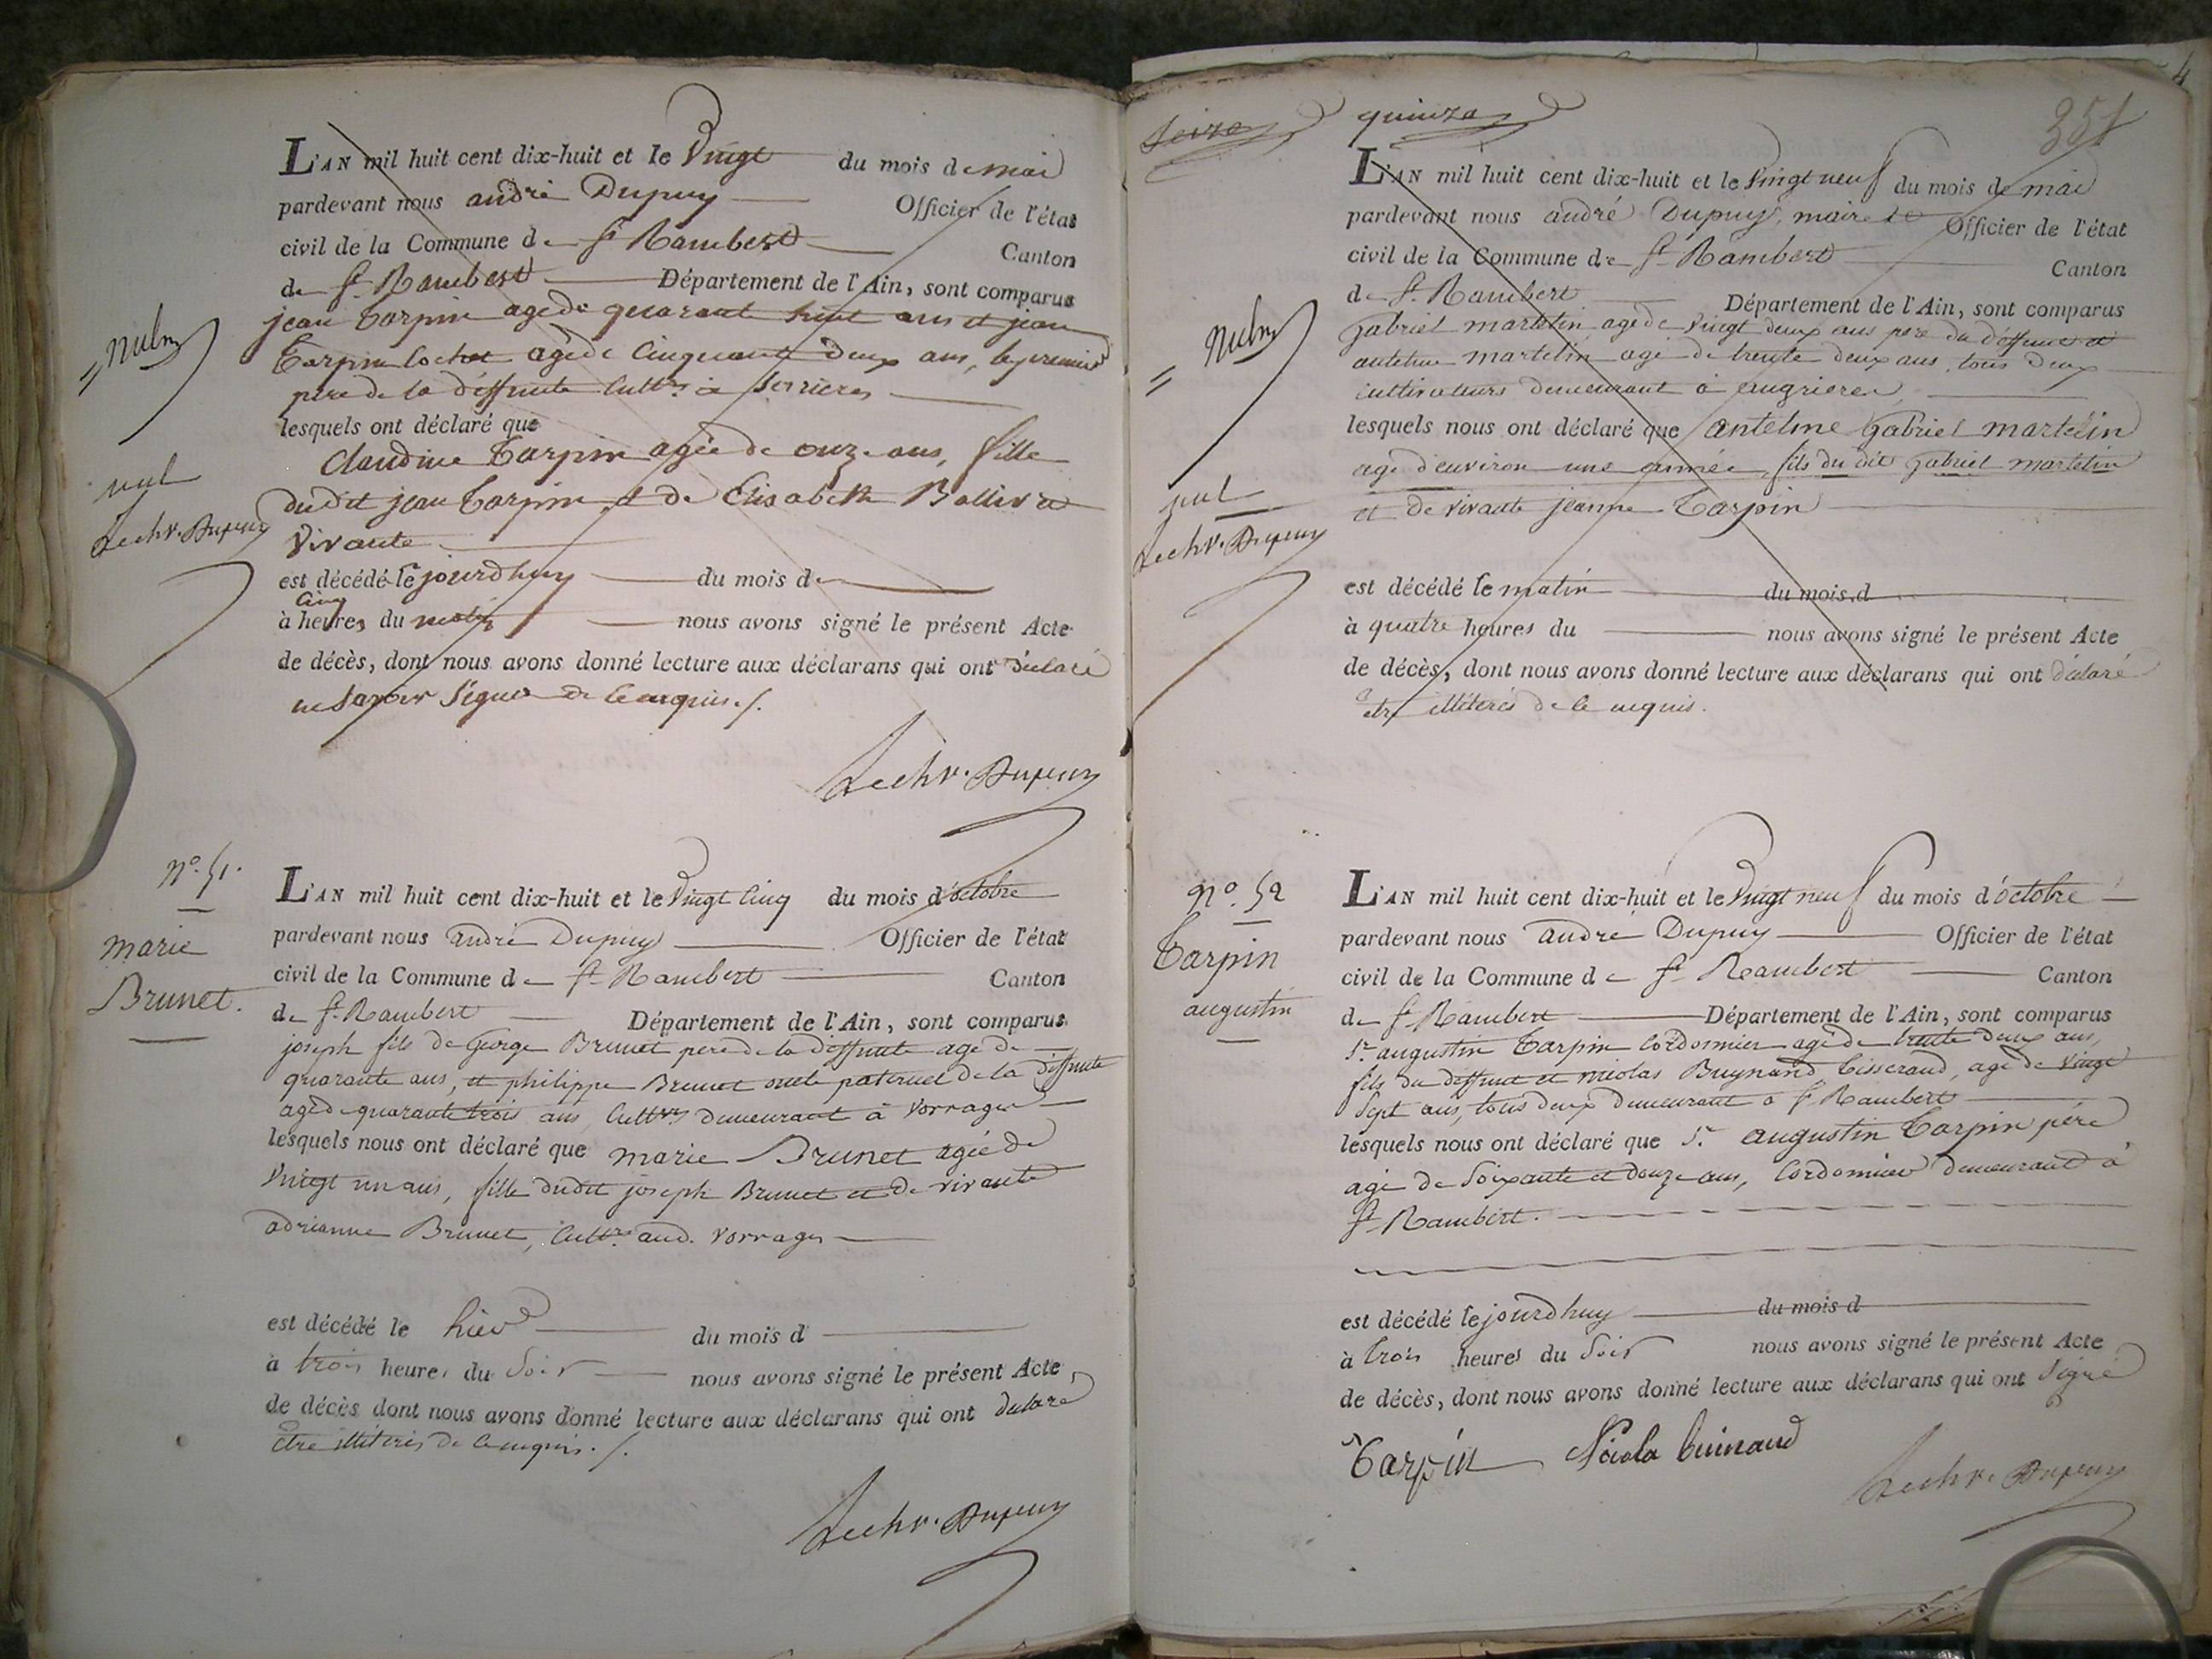 L'AN mil huit cent dix-huit et le Vingt du mois de mai
pardevant nous andré Dupuy Officier de l'état
civil de la Commune de St Rambert Canton
de St Rambert Département de l'Ain, sont comparus
jean Tarpin agé de quarante huit ans et jean
Tarpin agé de Cinquante deux ans, le premier
pere de la deffunte Cultrs à Serrieres
lesquels ont déclaré que
Claudine Tarpin agée de onze ans, fille
dudit jean Tarpin et de Elisabeth
Vivante
est décédé le jourdhuy du mois d
Cinq
à heures du matin nous avons signé le présent Acte
de décès, dont nous avons donné lecture aux déclarans qui ont déclaré
ne savoir signer de ce enquis ./.
nulm
nul
Lechv. Dupuy
Lechv. Dupuy
No. 51.
marie
Brunet.
L'AN mil huit cent dix-huit et le Vingt Cinq du mois d'octobre
pardevant nous andré Dupuy Officier de l'état
civil de la Commune de St Rambert Canton
de St Rambert Département de l'Ain, sont comparus
joseph fils de George Brunet pere de la deffunte agé de
quarante ans, et philippe Brunet oncle paternel de la deffunte
agé de quarante trois ans, Cultrs demeurant à Vorrages
lesquels nous ont déclaré que marie Brunet agée de
Vingt un ans, fille dudit joseph Brunet et de vivante
adrianne Brunet, Cultrs aud. Vorrages
est décédé le hier du mois d
à trois heures du Soir nous avons signé le présent Acte
de décès dont nous avons donné lecture aux déclarans qui ont declaré
être illiterés de ce enquis ./.
Lechv. Dupuy
Seize quinze
351
4
L'AN mil huit cent dix-huit et le Vingt neuf du mois de mai
pardevant nous andré Dupuy, maire et Officier de l'état
civil de la Commune de St Rambert Canton
de St Rambert Département de l'Ain, sont comparus
Gabriel martelin agé de Vingt deux ans pere du deffunt et
antelme martelin agé de trente deux ans, tous deux
cultivateurs demeurant à angrieres
lesquels nous ont déclaré que antelme Gabriel martelin
agé d'environ une année, fils du dit Gabriel martelin
et de vivante jeanne Tarpin
est décédé le matin du mois d
à quatre heures du nous avons signé le présent Acte
de décès, dont nous avons donné lecture aux déclarans qui ont déclaré
etre illiterés de ce enquis.
nulm
nul
Lechv. Dupuy
no. 52
Tarpin
augustin
L'AN mil huit cent dix-huit et le Vingt neuf du mois d'octobre
pardevant nous andré Dupuy Officier de l'état
civil de la Commune de St Rambert Canton
de St Rambert Département de l'Ain, sont comparus
Sr augustin Tarpin Cordonnier agé de trente deux ans,
fils du deffunt et nicolas Buynand Tisserand, agé de Vingt
Sept ans, tous deux demeurant à St Rambert
lesquels nous ont déclaré que Sr augustin Tarpin père
agé de Soixante et douze ans, Cordonnier demeurant à
St Rambert.
est décédé le jourdhuy du mois d
à trois heures du Soir nous avons signé le présent Acte
de décès, dont nous avons donné lecture aux déclarans qui ont Signé
Tarpin Nicola buinand
Lechv. Dupuy